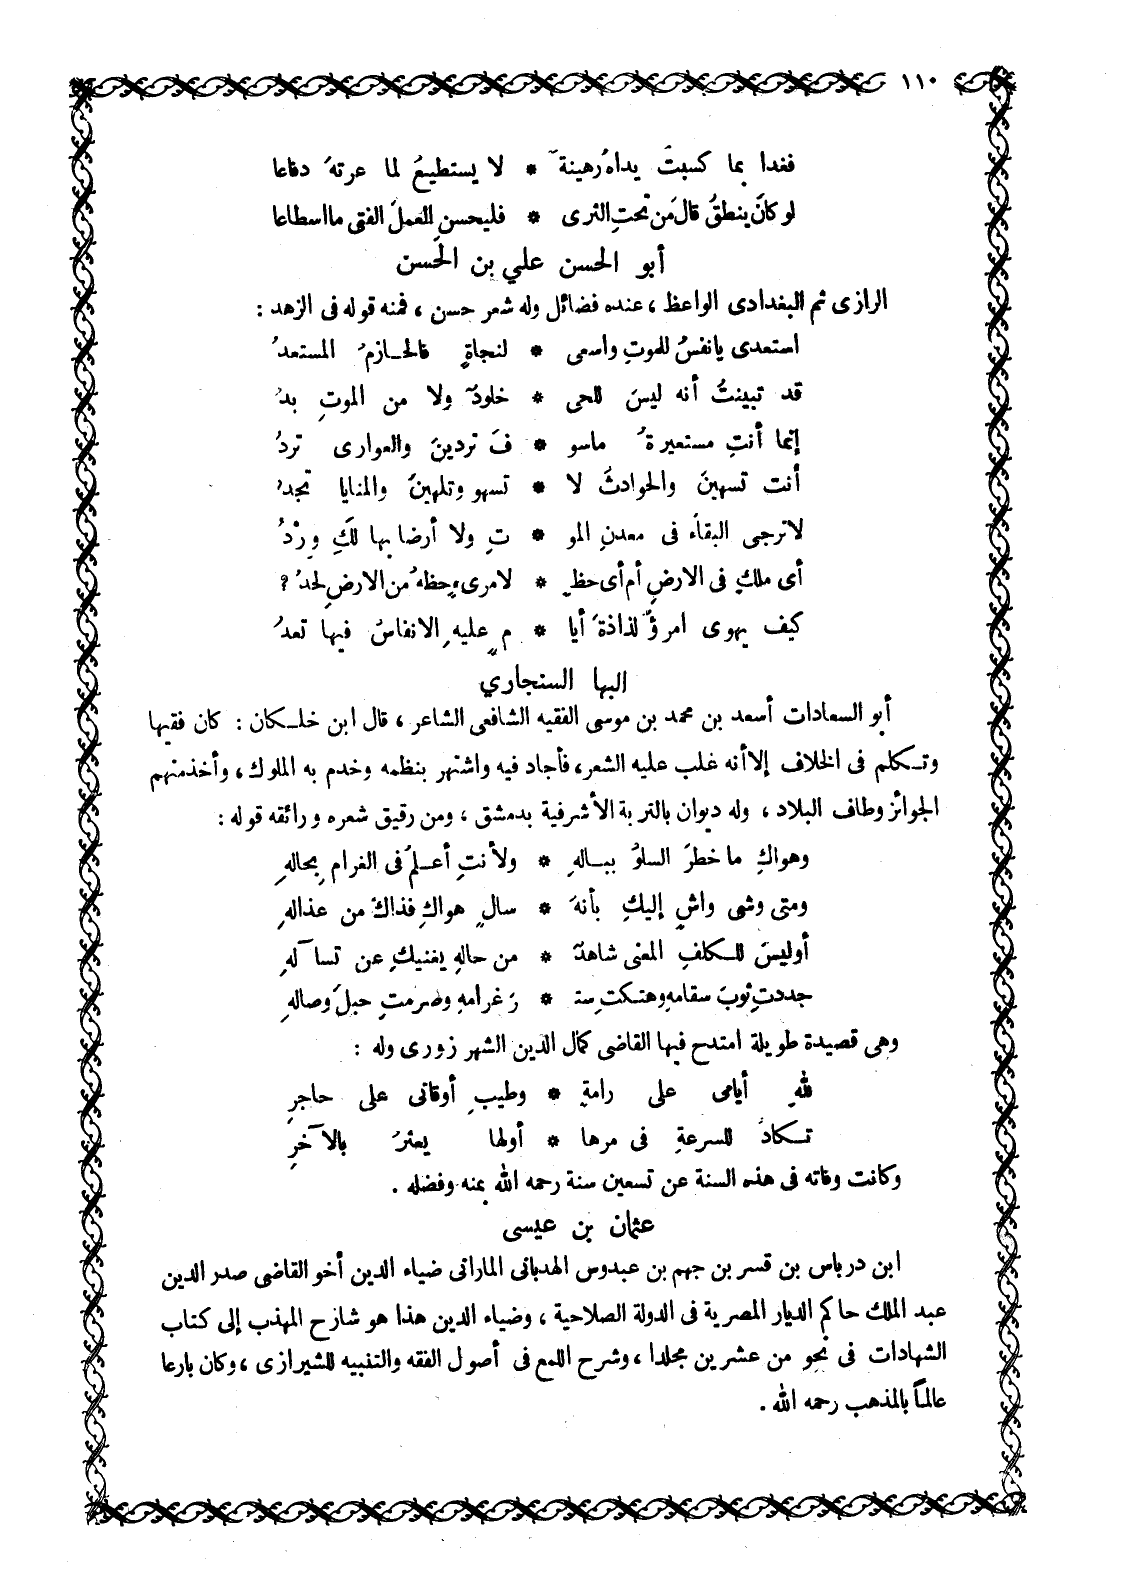 ١١٠
فغدا بما كسبت يداهُ رهينةً * لا يستطيعُ لما عرتهُ دفاعا
لو كانَ ينطقُ قال من تحتِ الثرى * فليحسنِ العملَ الفتى ما اسطاعا
أبو الحسن علي بن الحسن
الرازى ثم البغدادى الواعظ ، عنده فضائل وله شعر حسن ، فمنه قوله فى الزهد :
استعدى يا نفسُ للموتِ واسعى * لنجاةٍ فالحـازمُ المستعدُ
قد تبينتُ أنه ليسَ للحى * خلودٌ ولا من الموتِ بدُ
إنما أنتِ مستعيرةُ ماسو * فَ تردينَ والعوارى تردُ
أنت تسهينَ والحوادثُ لا * تسهو وتلهينَ والمنايا تجدُ
لا ترجى البقاءَ فى معدنِ المو * تِ ولا أرضا بها لكِ وِرْدُ
أى ملكٍ فى الارضِ أم أى حظٍ * لامرىءٍ حظهُ من الارضِ لحدُ ؟
كيف يهوى امرؤٌ لذاذةَ أيا * مٍ عليهِ الانفاسُ فيها تعدُ
البها السنجاري
أبو السعادات أسعد بن محمد بن موسى الفقيه الشافعى الشاعر ، قال ابن خلـكان : كان فقيها
وتـكلم فى الخلاف إلا أنه غلب عليه الشعر، فأجاد فيه واشتهر بنظمه وخدم به الملوك ، وأخذ منهم
الجوائز وطاف البلاد ، وله ديوان بالتربة الأشرفية بدمشق ، ومن رقيق شعره ورائقه قوله :
وهواكِ ما خطرَ السلوُ ببـالهِ * ولأنتِ أعـلمُ فى الغرام بِحالهِ
ومتى وشى واشٍ إليكِ بأنهَ * سالٍ هواكِ فذاكَ من عذالهِ
أوليسَ للـكلفِ المعنى شاهدٌ * من حالهِ يغنيكِ عن تسآلهِ
جددتِ ثوبَ سقامهِ وهتكتِ ستـ * رَ غرامهِ وصرمتِ حبلَ وصالهِ
وهى قصيدة طويلة امتدح فيها القاضى كمال الدين الشهرزورى وله :
للهِ أيامى على رامةٍ * وطيبِ أوقاتى على حاجرِ
تـكادُ للسرعةِ فى مرها * أولها يعثرُ بالآخرِ
وكانت وفاته فى هذه السنة عن تسعين سنة رحمه الله بمنه وفضله .
عثمان بن عيسى
ابن درباس بن قسر بن جهم بن عبدوس الهدبانى الماراتى ضياء الدين أخو القاضى صدر الدين
عبد الملك حاكم الديار المصرية فى الدولة الصلاحية ، وضياء الدين هذا هو شارح المهذب إلى كتاب
الشهادات فى نحو من عشرين مجلدا ، وشرح اللمع فى أصول الفقه والتنبيه للشيرازى ، وكان بارعا
عالماً بالمذهب رحمه الله .